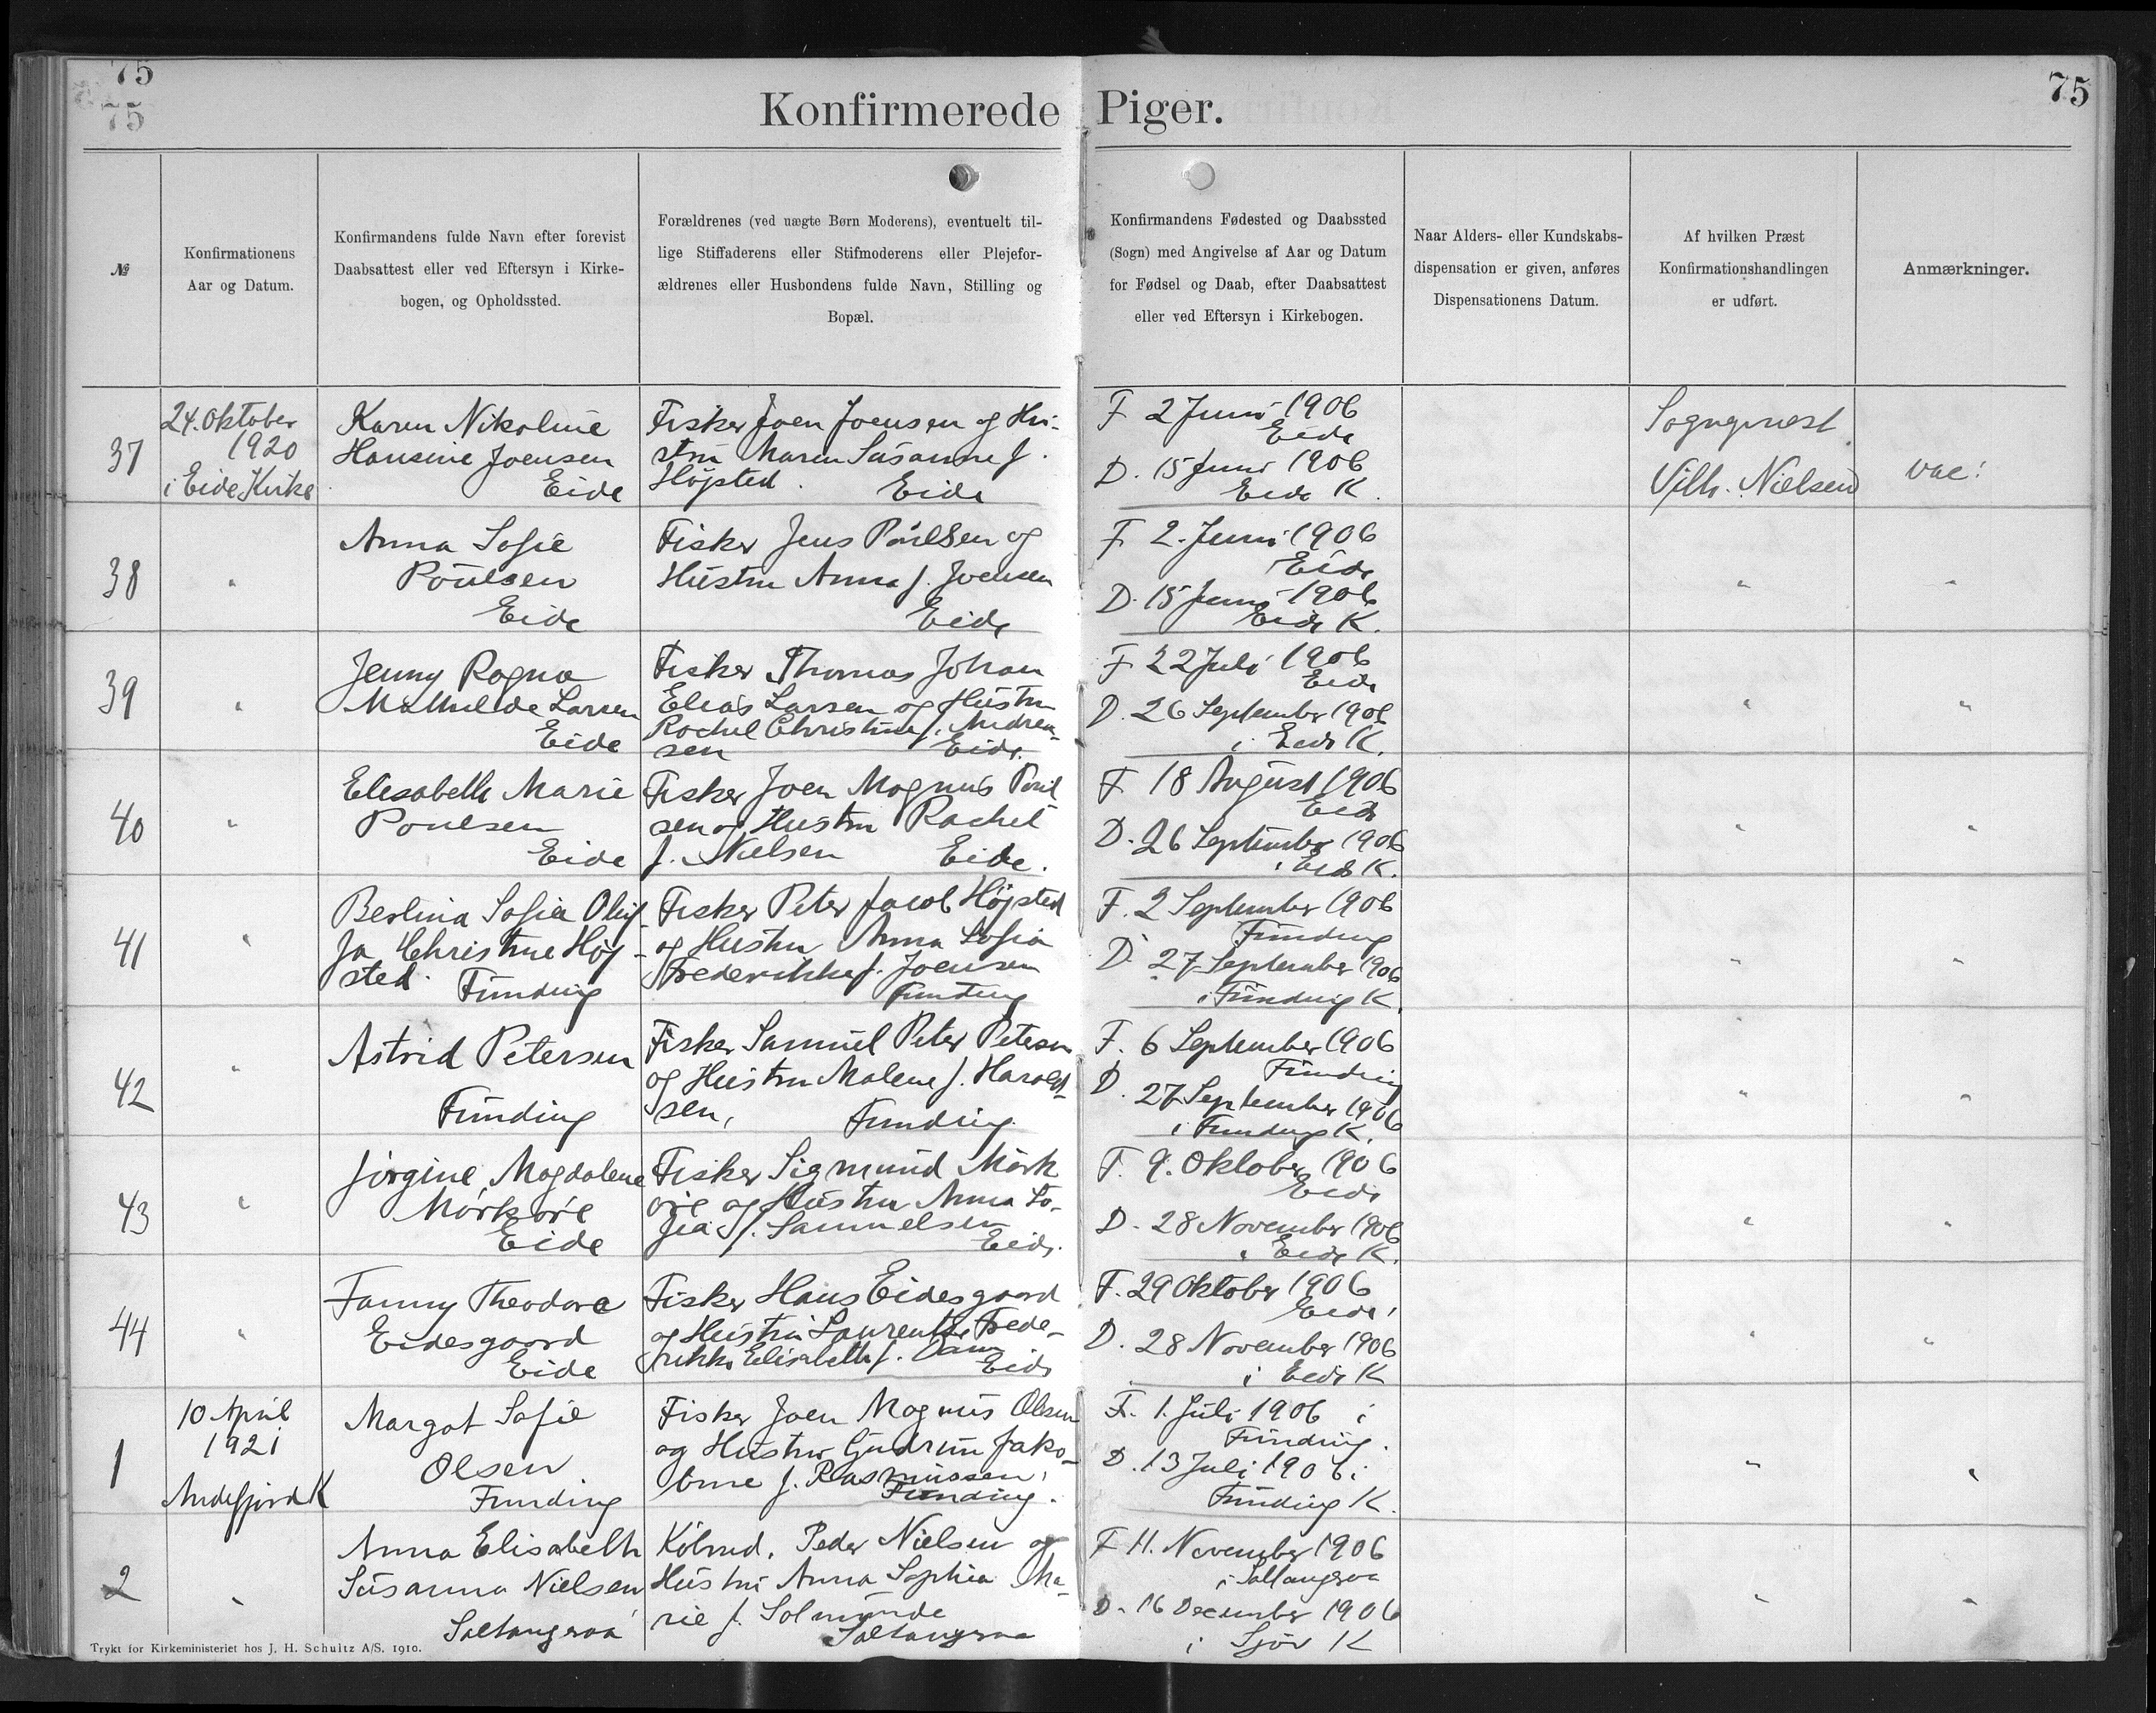 75
75
75
Konfirmerede Piger.
№
Konfirmationens
Aar og Datum.
Konfirmandens fulde Navn efter forevist
Daabsattest eller ved Eftersyn i Kirke-
bogen, og Opholdssted.
Forældrenes (ved uægte Børn Moderens), eventuelt til-
lige Stiffaderens eller Stifmoderens eller Plejefor-
ældrenes eller Husbondens fulde Navn, Stilling og
Bopæl.
Konfirmandens Fødested og Daabssted
(Sogn) med Angivelse af Aar og Datum
for Fødsel og Daab, efter Daabsattest
eller ved Eftersyn i Kirkebogen.
Naar Alders- eller Kundskabs-
dispensation er given, anføres
Dispensationens Datum.
Af hvilken Præst
Konfirmationshandlingen
er udført.
Anmærkninger.
37
24. Oktober
1920
i Eide Kirke
Karen Nikoline
Hansine Joensen
Eide
Fisker Joen Joensen og Hu-
stru Maren Susanne f.
Højsted. Eide
F 2 Juni 1906
Eide
D. 15 Juni 1906
Eide K.
Sognepræst
Vilh. Nielsen
vac:
38
"
Anna Sofie
Poulsen
Eide
Fisker Jens Poulsen og
Hustru Anna f. Joensen
Eide
F. 2. Juni 1906
Eide
D. 15 Juni 1906
Eide K.
"
"
39
"
Jenny Ragna
Mathilde Larsen
Eide
Fisker Thomas Johan
Elias Larsen og Hustru
Rachel Christine f. Andrea-
sen Eide.
F 22 Juli 1906
Eide
D. 26 September 1906
i Eide K.
"
"
40
"
Elisabeth Marie
Poulsen
Eide
Fisker Joen Magnus Poul
sen og Hustru Rachel
f. Nielsen Eide.
F 18 August 1906
Eide
D. 26 September 1906
i Eide K.
"
"
41
"
Berlina Sofia Oluf
fa Christine Høj-
sted. Funding
Fisker Peter Jacob Højsted
og Hustru Anna Sofia
Frederikke f. Joensen
Funding
F. 2 September 1906
Funding
D. 27 September 1906
i Funding K.
"
"
42
"
Astrid Petersen
Funding
Fisker Samuel Peter Petersen
og Hustru Malene f. Harald-
sen, Funding.
F. 6 September 1906
Funding
D. 27 September 1906
i Funding K.
"
"
43
"
Jörgine Magdalene
Mörköre
Eide
Fisker Sigmund Mörk
öre og Hustru Anna So-
fia f. Samuelsen
Eide.
F. 9. Oktober 1906
Eide
D. 28 November 1906
i Eide K.
"
"
44
"
Fanny Theodora
Eidesgaard
Eide
Fisker Hans Eidesgaard
og Hustru Laurentse Frede-
rikke Elisabeth f. Dam
Eide
F. 29 Oktober 1906
Eide
D. 28 November 1906
i Eide K
"
"
1
10 April
1921
Andefjord K
Margot Sofie
Olsen
Funding
Fisker Joen Magnus Olsen
og Hustru Gudrun Jako-
bine f. Rasmussen,
Funding.
F. 1. Juli 1906 i
Funding.
D. 13 Juli 1906 i
Funding K.
"
"
2
"
Anna Elisabeth
Susanna Nielsen
Saltangeraa
Købmd. Peder Nielsen og
Hustru Anna Sophia Ma-
rie f. Solmunde
Saltangeraa
F 11. November 1906
i Saltangeraa
D. 16 December 1906
i Sjov K
"
"
Trykt for Kirkeministeriet hos J. H. Schultz A/S. 1910.